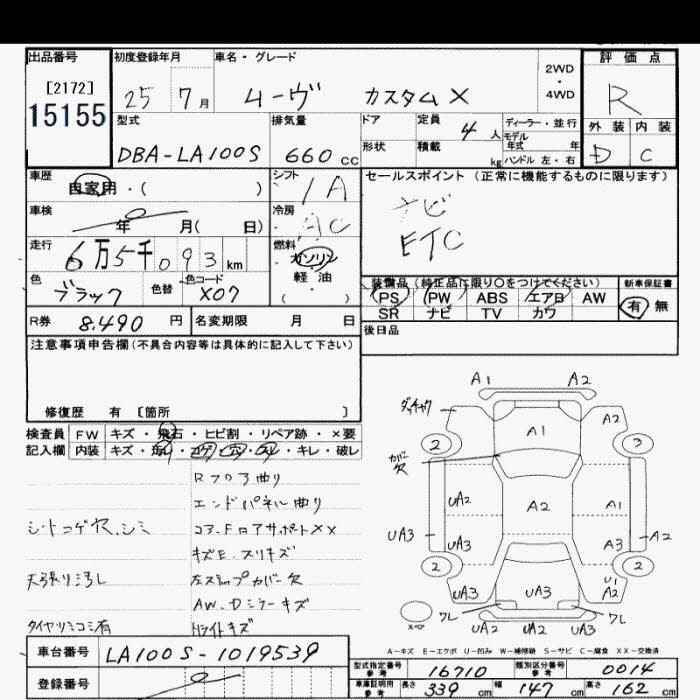 出品番号
[2172]
15155
初度登録年月
25 7月
車名・グレード
ムーヴ カスタムX
2WD
・
4WD
評価点
R
外装 内装
D C
型式
DBA-LA100S
排気量
660 cc
ドア
形状
定員 4人
積載 kg
ディーラー・並行
モデル
年式 年
ハンドル 左・右
車歴
自家用・( )
シフト
IA
セールスポイント (正常に機能するものに限ります)
ナビ
ETC
車検
年 月( 日)
冷房
AC
走行
6万5千093 km
燃料
ガソリン
軽・油
( ・ )
色
ブラック
色替
色コード
X07
装備品 (純正品に限り○をつけてください)
PS PW ABS エアB AW
SR ナビ TV カワ
新車保証書
有 無
R券 8,490 円
名変期限 月 日
後日品
注意事項申告欄(不具合内容等は具体的に記入して下さい)
修復歴 有 [箇所 ]
検査員 FW キズ・飛石・ヒビ割・リペア跡・×要
記入欄 内装 キズ・汚レ・コゲ・穴・スレ・キレ・破レ
Rフロア曲り
エンドパネル曲り
シートコゲ穴、シミ
コア、Fロアサポート××
キズE、スリキズ
天張り汚レ
カバー欠
AW、Dミラーキズ
タイヤツミコミ有
Hライトキズ
A1 A2
A1
A2
2
3
カバー
欠
UA2
A2
A1
UA3
UA3
A3
A2
2
2
UA3
UA3
U1
A2
ワレ
ワレ
スペア
UA2 UA2 UA3
A−キズ E−エクボ U−凹み W−補修跡 S−サビ C−腐食 XX−交換済
車台番号 LA100S-1019539
登録番号
型式指定番号
参考
16710
類別区分番号
参考
0014
車庫証明用
参考
長さ 339 cm 幅 147 cm 高さ 162 cm